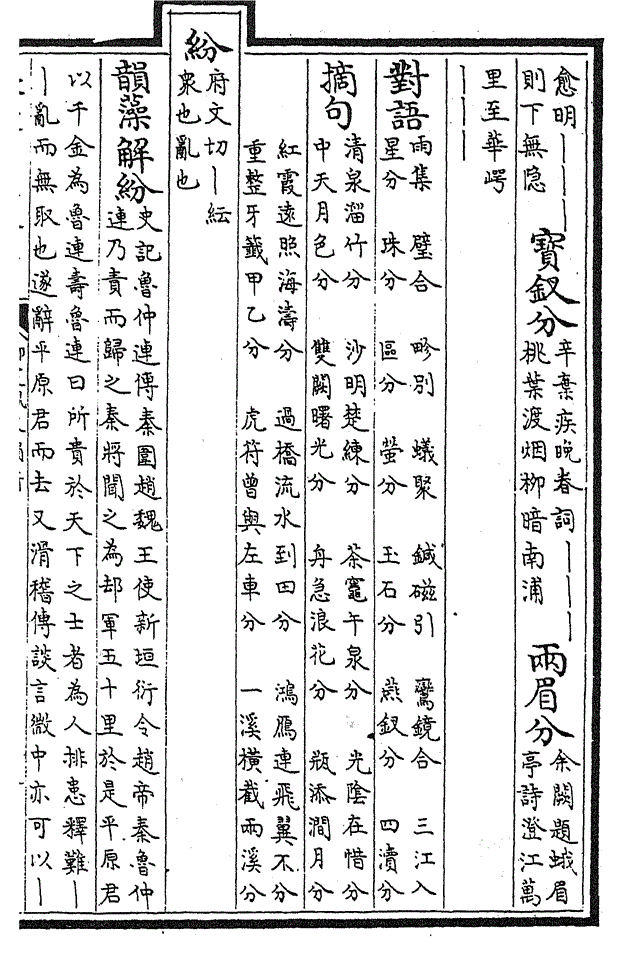 愈明｜｜｜
則下無隐
寶釵分
辛棄疾晚春詞｜｜｜
桃葉渡烟柳暗南浦
兩眉分
余闕題蛾眉
亭詩澄江萬
里至華崿
｜｜｜
對語
雨集 璧合 畛別 蟻聚 鍼磁引 鸞鏡合 三江入
星分 珠分 區分 螢分 玉石分 燕釵分 四瀆分
摘句
清泉溜竹分 沙明楚練分 茶竈午泉分 光陰在惜分
中天月色分 雙闕曙光分 舟急浪花分 瓶添澗月分
紅霞遠照海濤分 過橋流水到田分 鴻鴈連飛翼不分
重整牙籤甲乙分 虎符曾與左車分 一溪橫截兩溪分
紛
府文切｜紜
衆也亂也
韻藻
解紛
史記魯仲連傳秦圍趙魏王使新垣衍令趙帝秦魯仲
連乃責而歸之秦將聞之為却軍五十里於是平原君
以千金為魯連壽魯連曰所貴於天下之士者為人排患釋難｜
｜亂而無取也遂辭平原君而去又滑稽傳談言微中亦可以｜